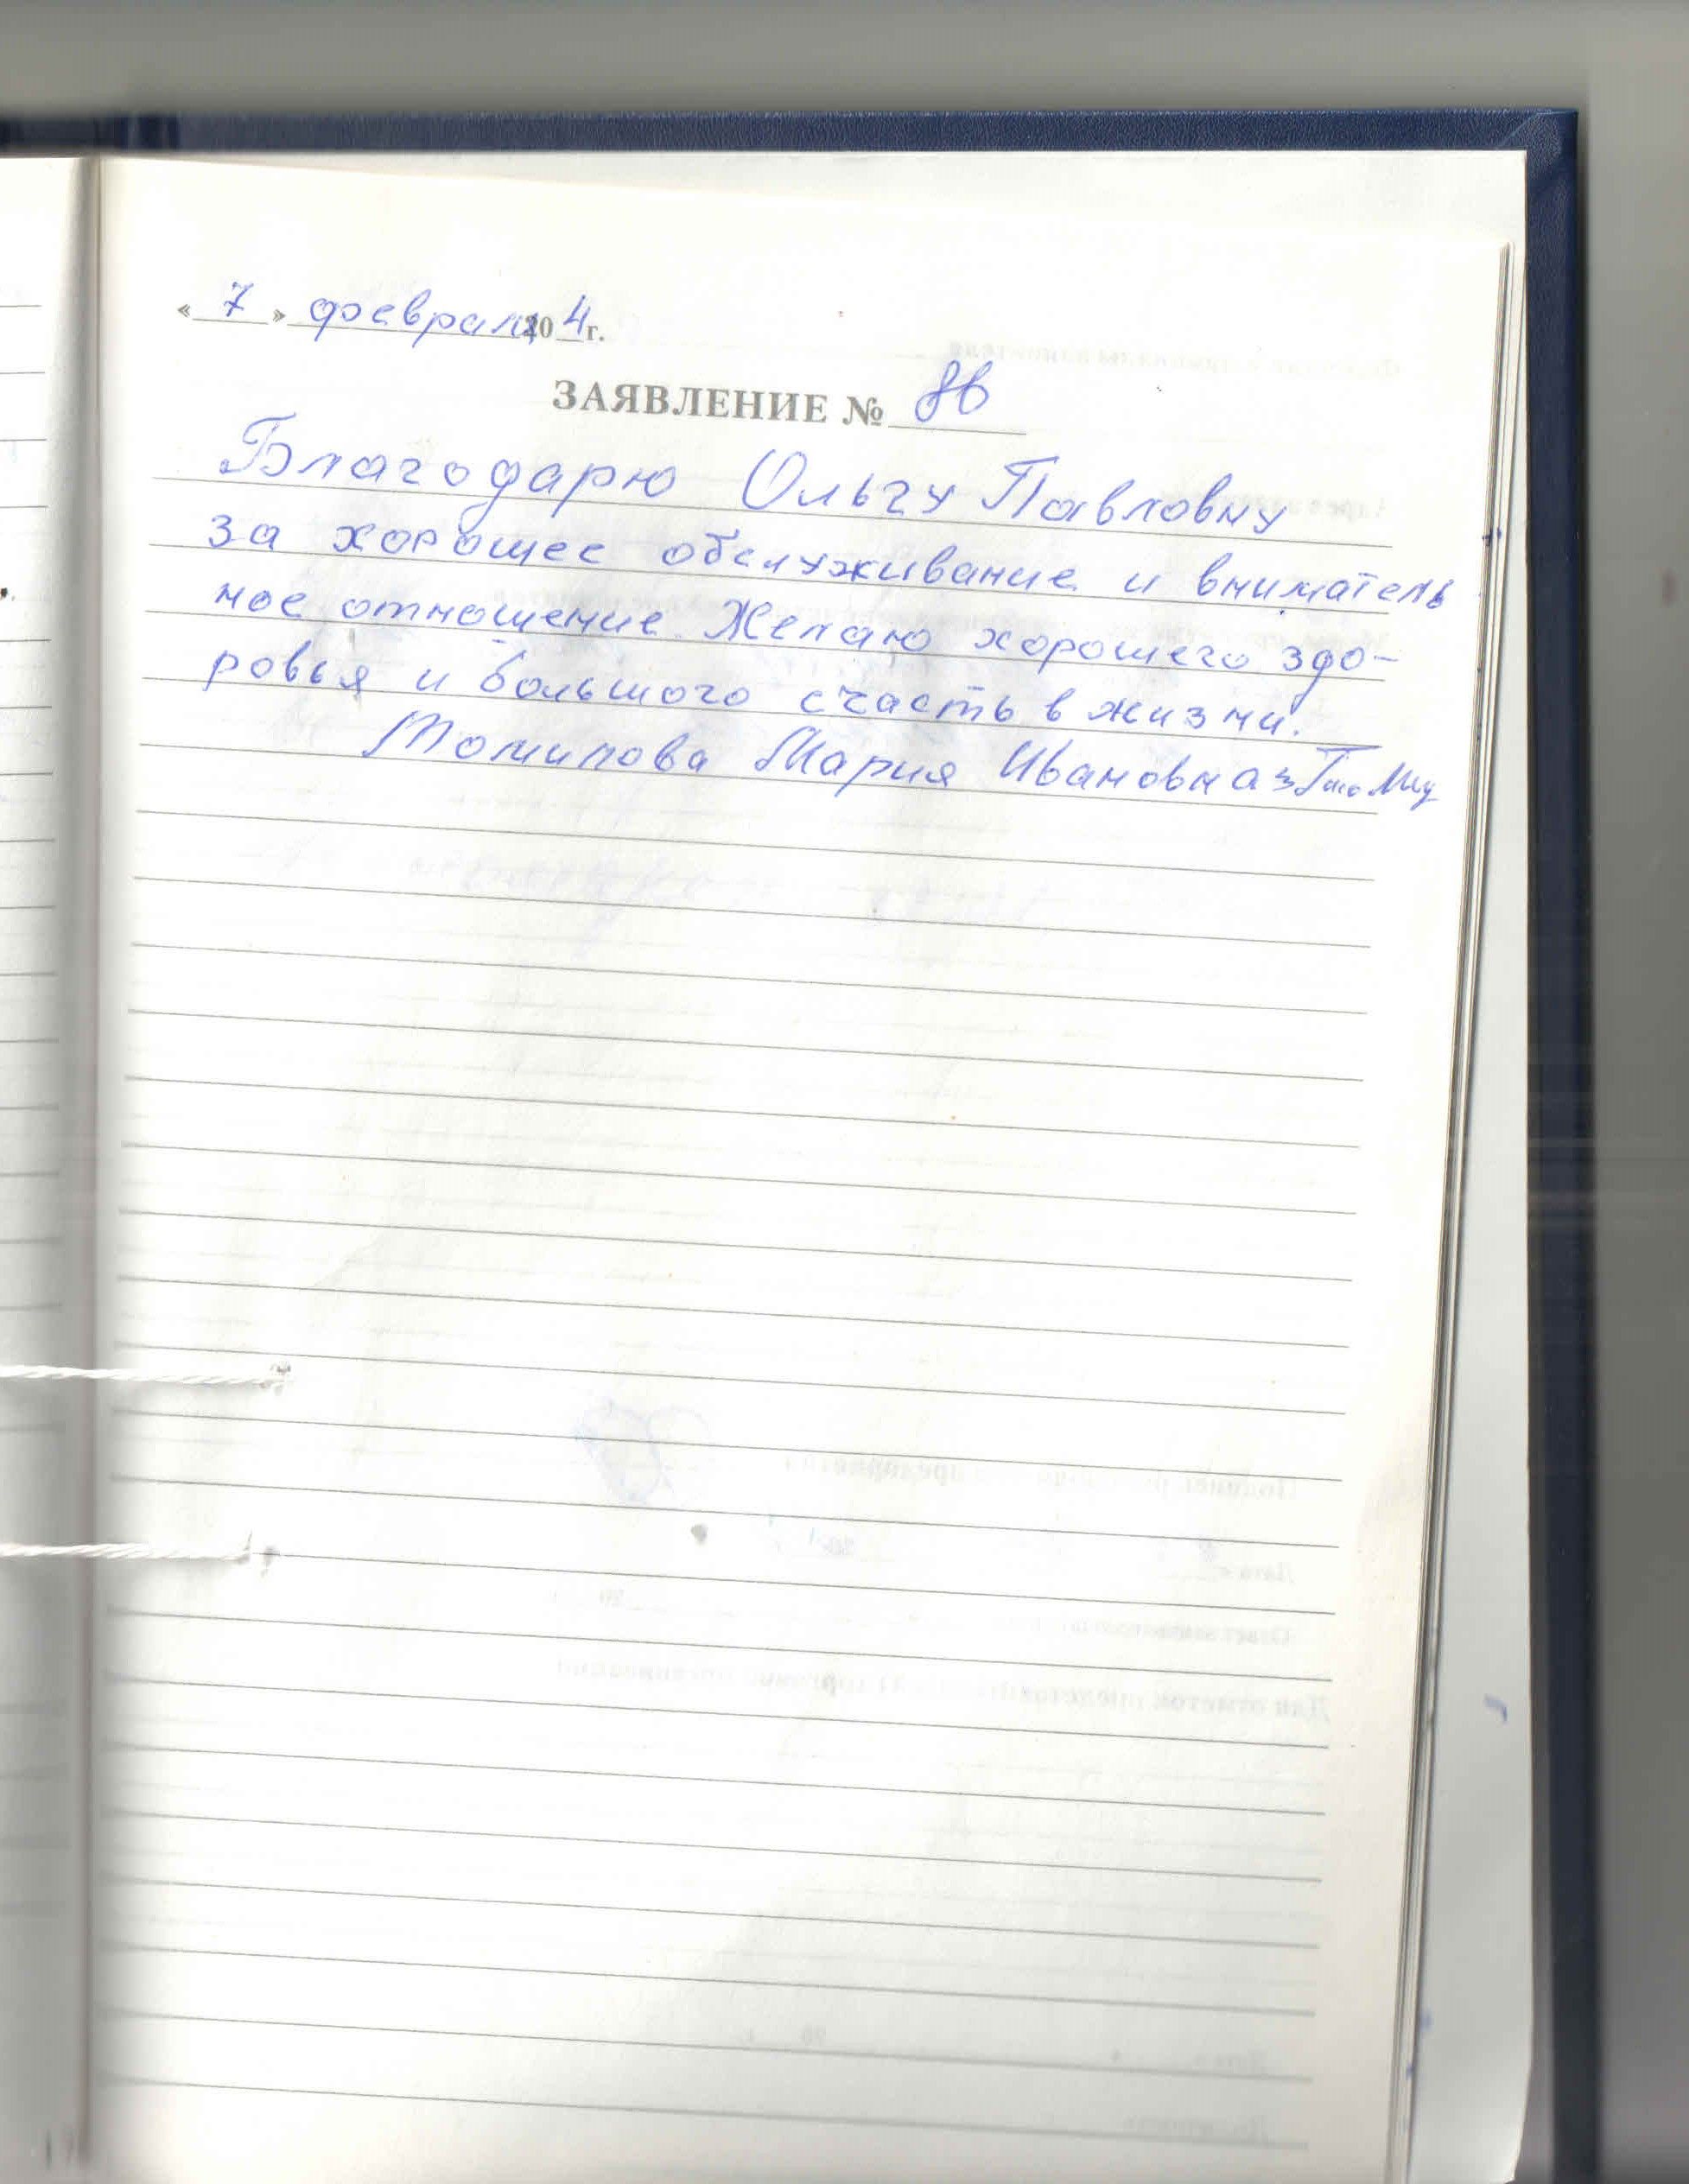 « 7 » февраля 20 4 г.
ЗАЯВЛЕНИЕ №
Благодарю Ольгу Павловну
за хорошее обслуживание и вниматель
ное отношение. Желаю хорошего здо-
ровья и большого счасть в жизни.
Томилова Мария Ивановна